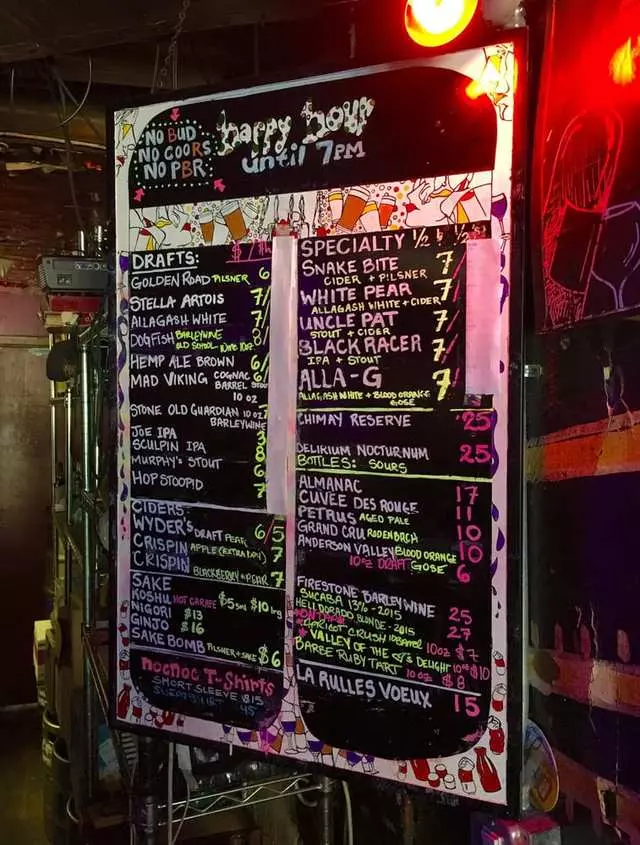 NO BUD
NO COORS
NO PBR
happy hour
until 7PM
DRAFTS:
GOLDEN ROAD PILSNER 6
STELLA ARTOIS 7/
ALLAGASH WHITE 7/
DOGFISH BARLEYWINE
OLD SCHOOL 8/
HEMP ALE BROWN 6/
MAD VIKING COGNAC
BARREL STOUT
10 OZ
STONE OLD GUARDIAN 10 OZ 7
BARLEYWINE
JOE IPA 3
SCULPIN IPA 8
MURPHY'S STOUT 6
HOP STOOPID 7
CIDERS:
WYDER'S DRAFT PEAR 6/5
CRISPIN APPLE (EXTRA DRY) 7
CRISPIN BLACKBERRY + PEAR 7
SAKE
KOSHU HOT CARAFE $5 sml $10 lrg
NIGORI $13
GINJO $16
SAKE BOMB PILSNER + SAKE $6
nocnoc T-Shirts
SHORT SLEEVE $15
SPECIALTY 1/2 & 1/2 $
SNAKE BITE 7/
CIDER + PILSNER
WHITE PEAR 7/
ALLAGASH WHITE + CIDER
UNCLE PAT 7/
STOUT + CIDER
BLACK RACER 7/
IPA + STOUT
ALLA-G 7/
ALLAGASH WHITE + BLOOD ORANGE
GOSE
CHIMAY RESERVE 25
DELIRIUM NOCTURNUM 25
BOTTLES: SOURS
ALMANAC 17
CUVÉE DES ROUGE 11
PETRUS AGED PALE 10
GRAND CRU RODENBACH 10
ANDERSON VALLEY BLOOD ORANGE
10OZ DRAFT GOSE 6
FIRESTONE BARLEYWINE
SUCABA 13% - 2015 25
HELLDORADO BLONDE - 2015 27
CRUSH 10OZ $7
VALLEY OF THE ♡'S DELIGHT 10OZ $10
BARBE RUBY TART 10 OZ $8
LA RULLES VOEUX 15